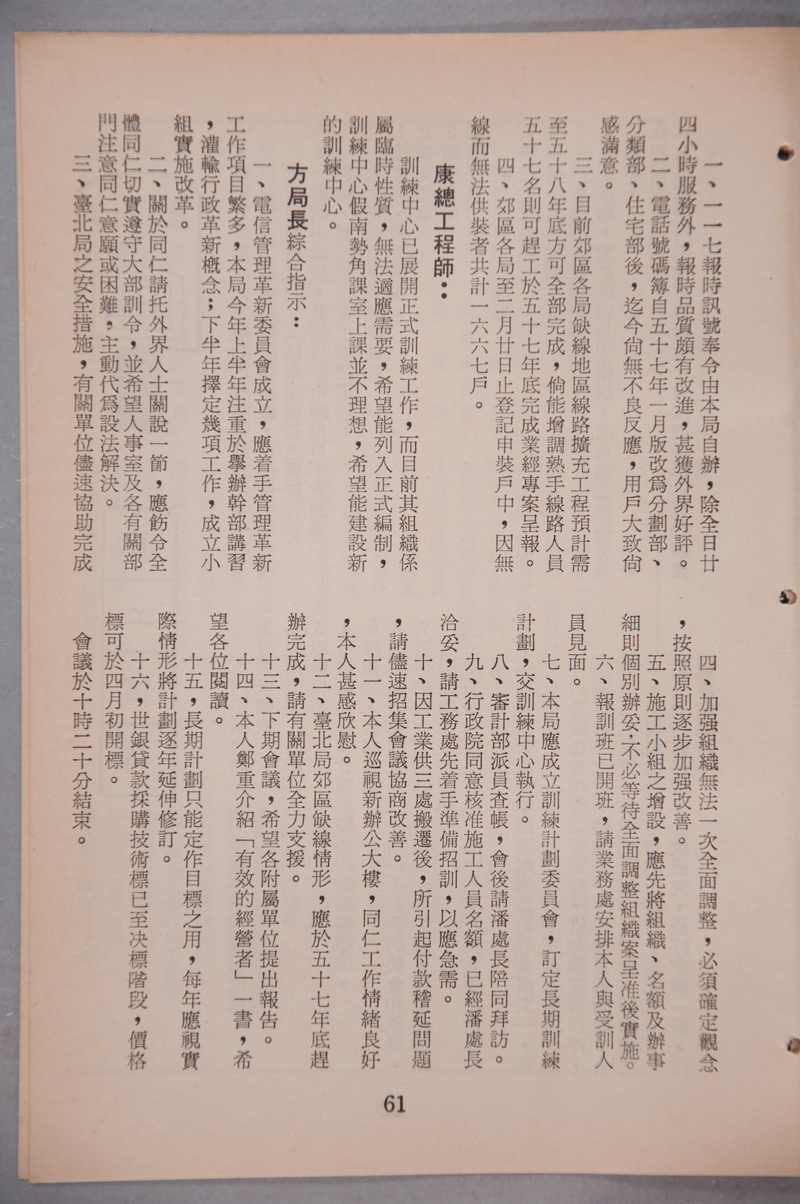 一、一一七報時訊號奉令由本局自辦，除全日廿
四小時服務外，報時品質頗有改進，甚獲外界好評。
二、電話號碼簿自五十七年一月版改爲分劃部、
分類部、住宅部後，迄今尙無不良反應，用戶大致尙
感滿意。
三、目前郊區各局缺線地區線路擴充工程預計需
至五十八年底方可全部完成，倘能增調熟手線路人員
五十七名則可趕工於五十七年底完成業經專案呈報。
四、郊區各局至二月廿日止登記申裝戶中，因無
線而無法供裝者共計一六六七戶。
康總工程師：
訓練中心已展開正式訓練工作，而目前其組織係
屬臨時性質，無法適應需要，希望能列入正式編制，
訓練中心假南勢角課室上課並不理想，希望能建設新
的訓練中心。
方局長綜合指示：
一、電信管理革新委員會成立，應着手管理革新
工作項目繁多，本局今年上半年注重於舉辦幹部講習
，灌輸行政革新概念；下半年擇定幾項工作，成立小
組實施改革。
二、關於同仁請托外界人士關說一節，應飭令全
體同仁切實遵守大部訓令，並希望人事室及各有關部
門注意同仁意願或困難，主動代爲設法解決。
三、臺北局之安全措施，有關單位儘速協助完成
四、加强組織無法一次全面調整，必須確定觀念
，按照原則逐步加强改善。
五、施工小組之增設，應先將組織、名額及辦事
細則個別辦妥，不必等待全面調整組織案呈准後實施。
六、報訓班已開班，請業務處安排本人與受訓人
員見面。
七、本局應成立訓練計劃委員會，訂定長期訓練
計劃，交訓練中心執行。
八、審計部派員查帳，會後請潘處長陪同拜訪。
九、行政院同意核准施工人員名額，已經潘處長
洽妥，請工務處先着手準備招訓，以應急需。
十、因工業供三處搬遷後，所引起付款稽延問題
，請儘速招集會議協商改善。
十一、本人巡視新辦公大樓，同仁工作情緒良好
，本人甚感欣慰。
十二、臺北局郊區缺線情形，應於五十七年底趕
辦完成，請有關單位全力支援。
十三、下期會議，希望各附屬單位提出報告。
十四、本人鄭重介紹「有效的經營者」一書，希
望各位閱讀。
十五，長期計劃只能定作目標之用，每年應視實
際情形將計劃逐年延伸修訂。
十六，世銀貸款採購技術標已至決標階段，價格
標可於四月初開標。
會議於十時二十分結束。
61